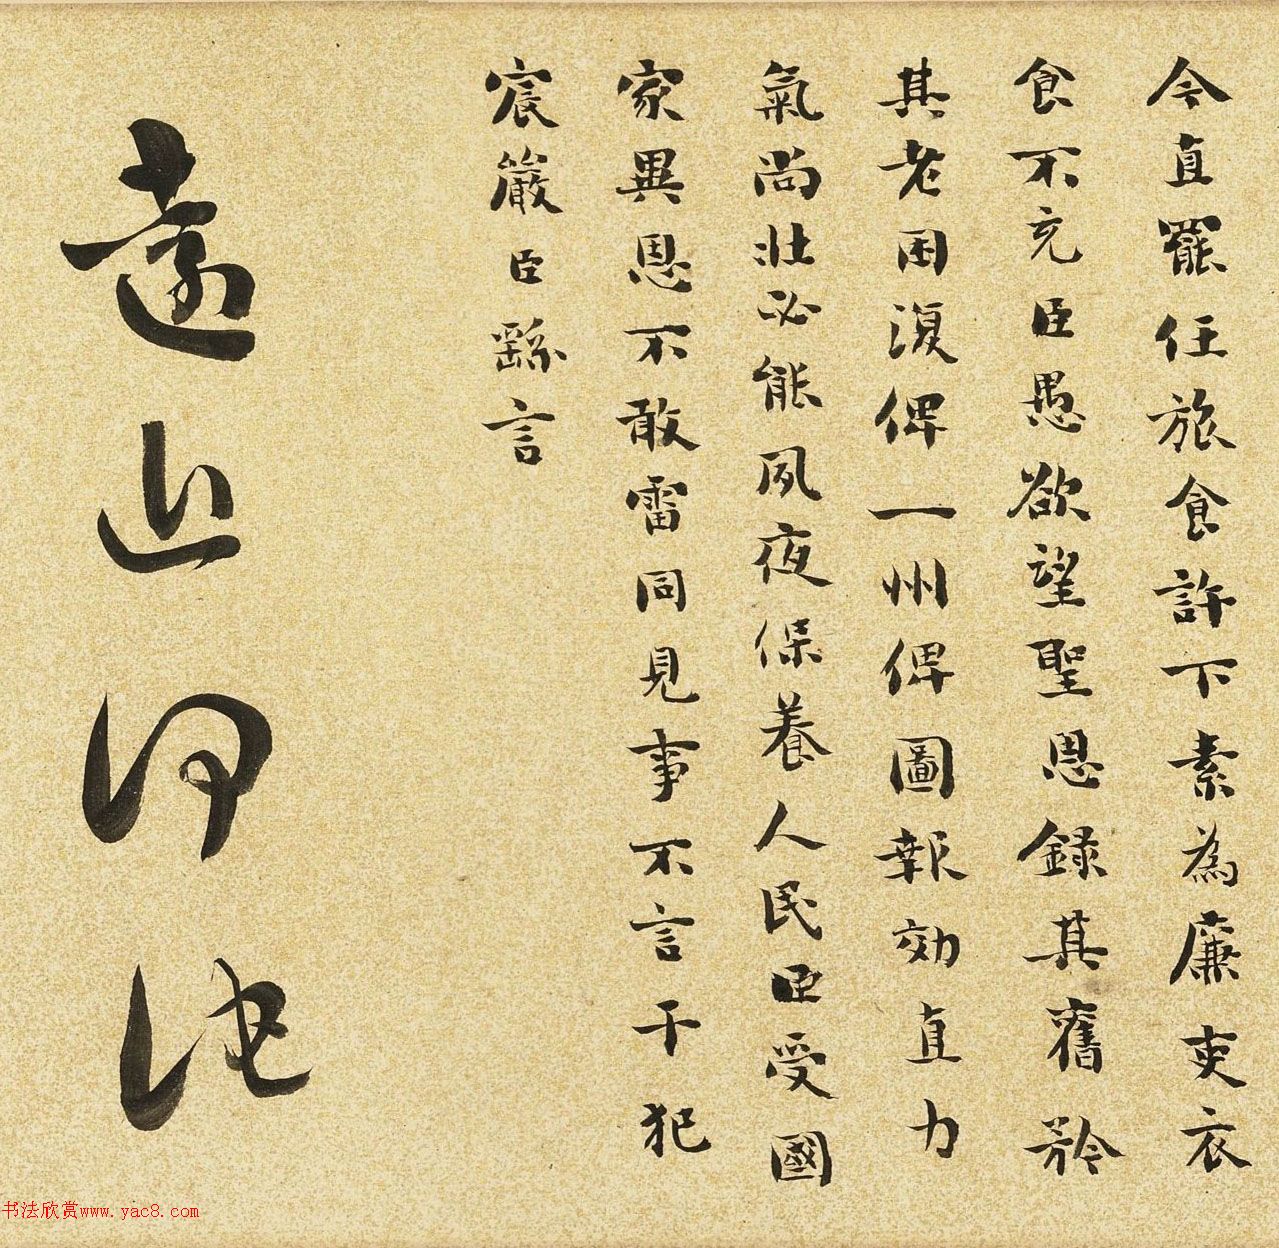 今直罷任旅食許下素為廉吏衣
食不充臣愚欲望聖恩錄其舊矜
其老困復俾一州俾圖報効直力
氣尚壯必能夙夜保養人民臣受國
家異恩不敢雷同見事不言干犯
宸嚴臣繇言
遠近何
书法欣赏www.yac8.com